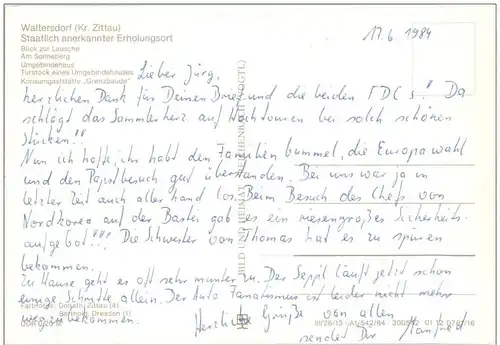 Waltersdorf (Kr. Zittau)
Staatlich anerkannter Erholungsort
Blick zur Lausche
Am Sonneberg
Umgebindehaus
Türstock eines Umgebindehauses
Konsumgaststätte „Grenzbaude"
17.6.1984
Lieber Jürg.
herzlichen Dank für Deinen Brief und die beiden FDC's! Da
schlägt das Sammlerherz auf Hochtouren bei solch schönen
Stücken!!
Nun ich hoffe, ihr habt den Familienbummel, die Europawahl
und den Papstbesuch gut überstanden. Bei uns war ja in
letzter Zeit auch aller hand los. Beim Besuch des Chefs von
Nordkorea auf der Bastei gab es ein riesengroßes Sicherheits-
aufgebot!!! Die Schwester von Thomas hat es zu spüren
bekommen.
Zu Hause geht es oft sehr munter zu. Der Seppl läuft jetzt schon
einige Schritte allein. Der Auto Fanatismus ist leider nicht mehr
wegzubekommen.
Herzliche Grüße von allen
sendet Dir Manfred
Farbfotos: Donath, Zittau (4)
Dresden (1)
BILD UND HEIMAT REICHENBACH (VOGTL)
III/26/13 A1/542/84 01 12 0767/16